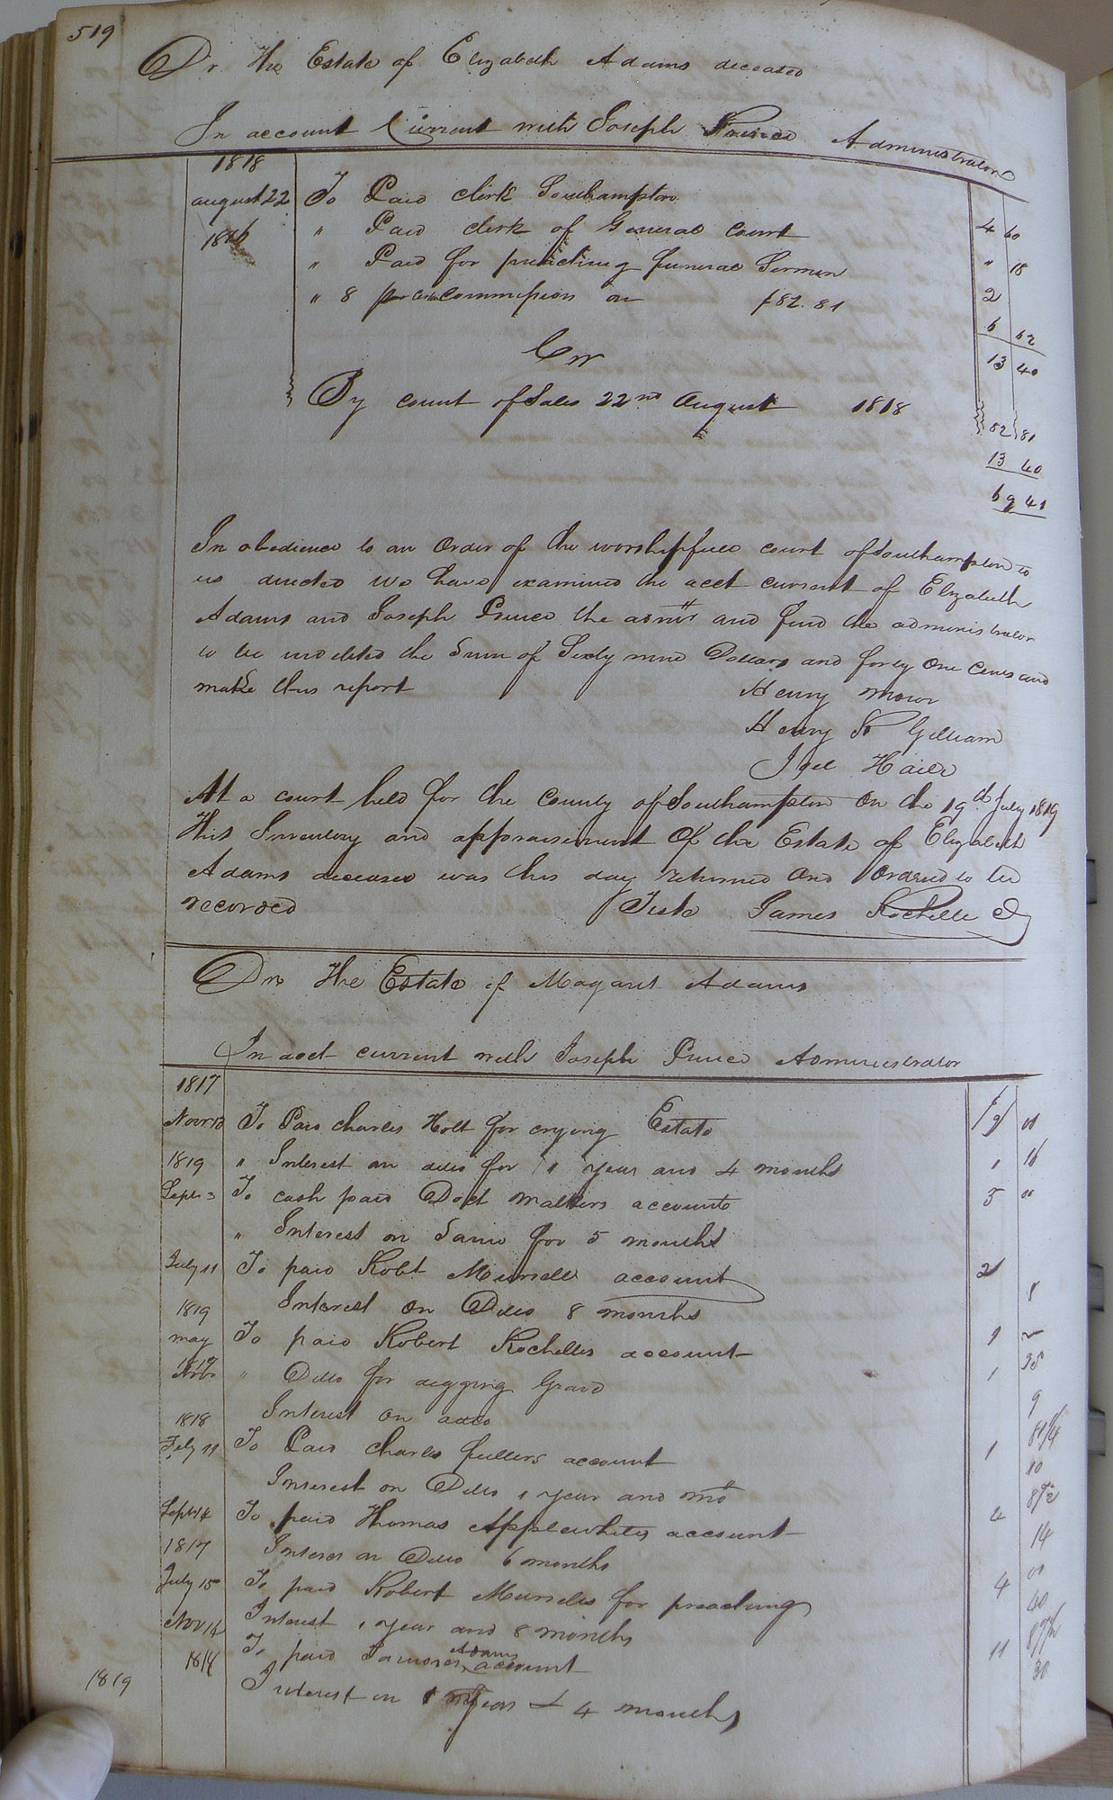 519
Dr. The Estate of Elizabeth Adams deceased
In account Current with Joseph Prince Administrator
1818
august 22 To Paid clerk Southampton 4 60
1816 " Paid clerk of General Court " 18
" Paid for preaching funeral Sermon 2
" 8 per cent commission on £82.81 6 62
13 40
Crr
By count of Sales 22nd August 1818 82 81
13 40
69 41
In obedience to an Order of the worshipfull court of Southampton to
us directed we have examined the acct current of Elizabeth
Adams and Joseph Prince the admr and find the administrator
to be indebted the Sum of Sixty nine Dollars and forty One cents and
make this report
Henry
Henry Gilliam
Joel
At a court held for the County of Southampton on the 19th July 1819
This Inventory and appraisement Of the Estate of Elizabeth
Adams deceased was this day returned and Ordered to be
recorded Teste James Rochelle
Dr The Estate of Magaret Adams
In acct current with Joseph Prince Administrator
1817
Novr To Paid Charles Holt for crying Estate
1819 " Interest on ditto for 1 year and 4 months 1 16
Sept 3 To cash paid Doct account 5 "
" Interest on Same for 5 months
July 11 To paid Robt account 2
Interest on Ditto 8 months 8
1819
may To paid Robert Rochelles account 1
1817
Ditto for digging Grave 1
Interest on ditto 9
1818
Feby 11 To Paid Charles fullers account 1
Interest on Ditto 1 year and 10
Sept 14 To paid Thomas Applewhites account 4
1817 Interest on Ditto 6 months 14
July 15 To paid Robert for preaching 4
Novr 14 Interest 1 year and 8 months 40
To paid Adams account 11
1819
Interest on 1 year & 4 months